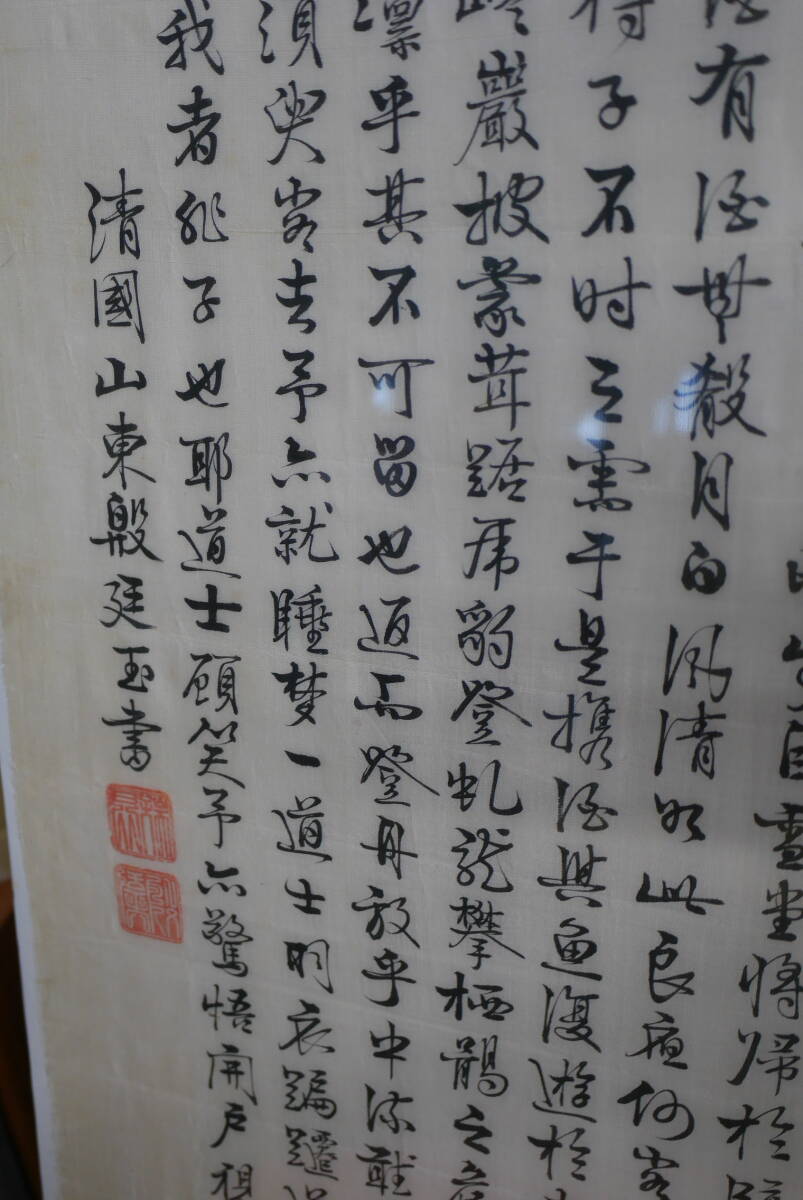 自雪堂將歸於臨
有酒無殽月白風清如此良夜何客
得子不時之需于是攜酒與魚復遊於
巖披蒙茸踞虎豹登虬龍攀栖鶻之危
凜乎其不可留也返而登舟放乎中流聽
須臾客去予亦就睡夢一道士羽衣蹁躚
我者非子也耶道士顧笑予亦驚悟開戶視
清國山東殷廷玉書